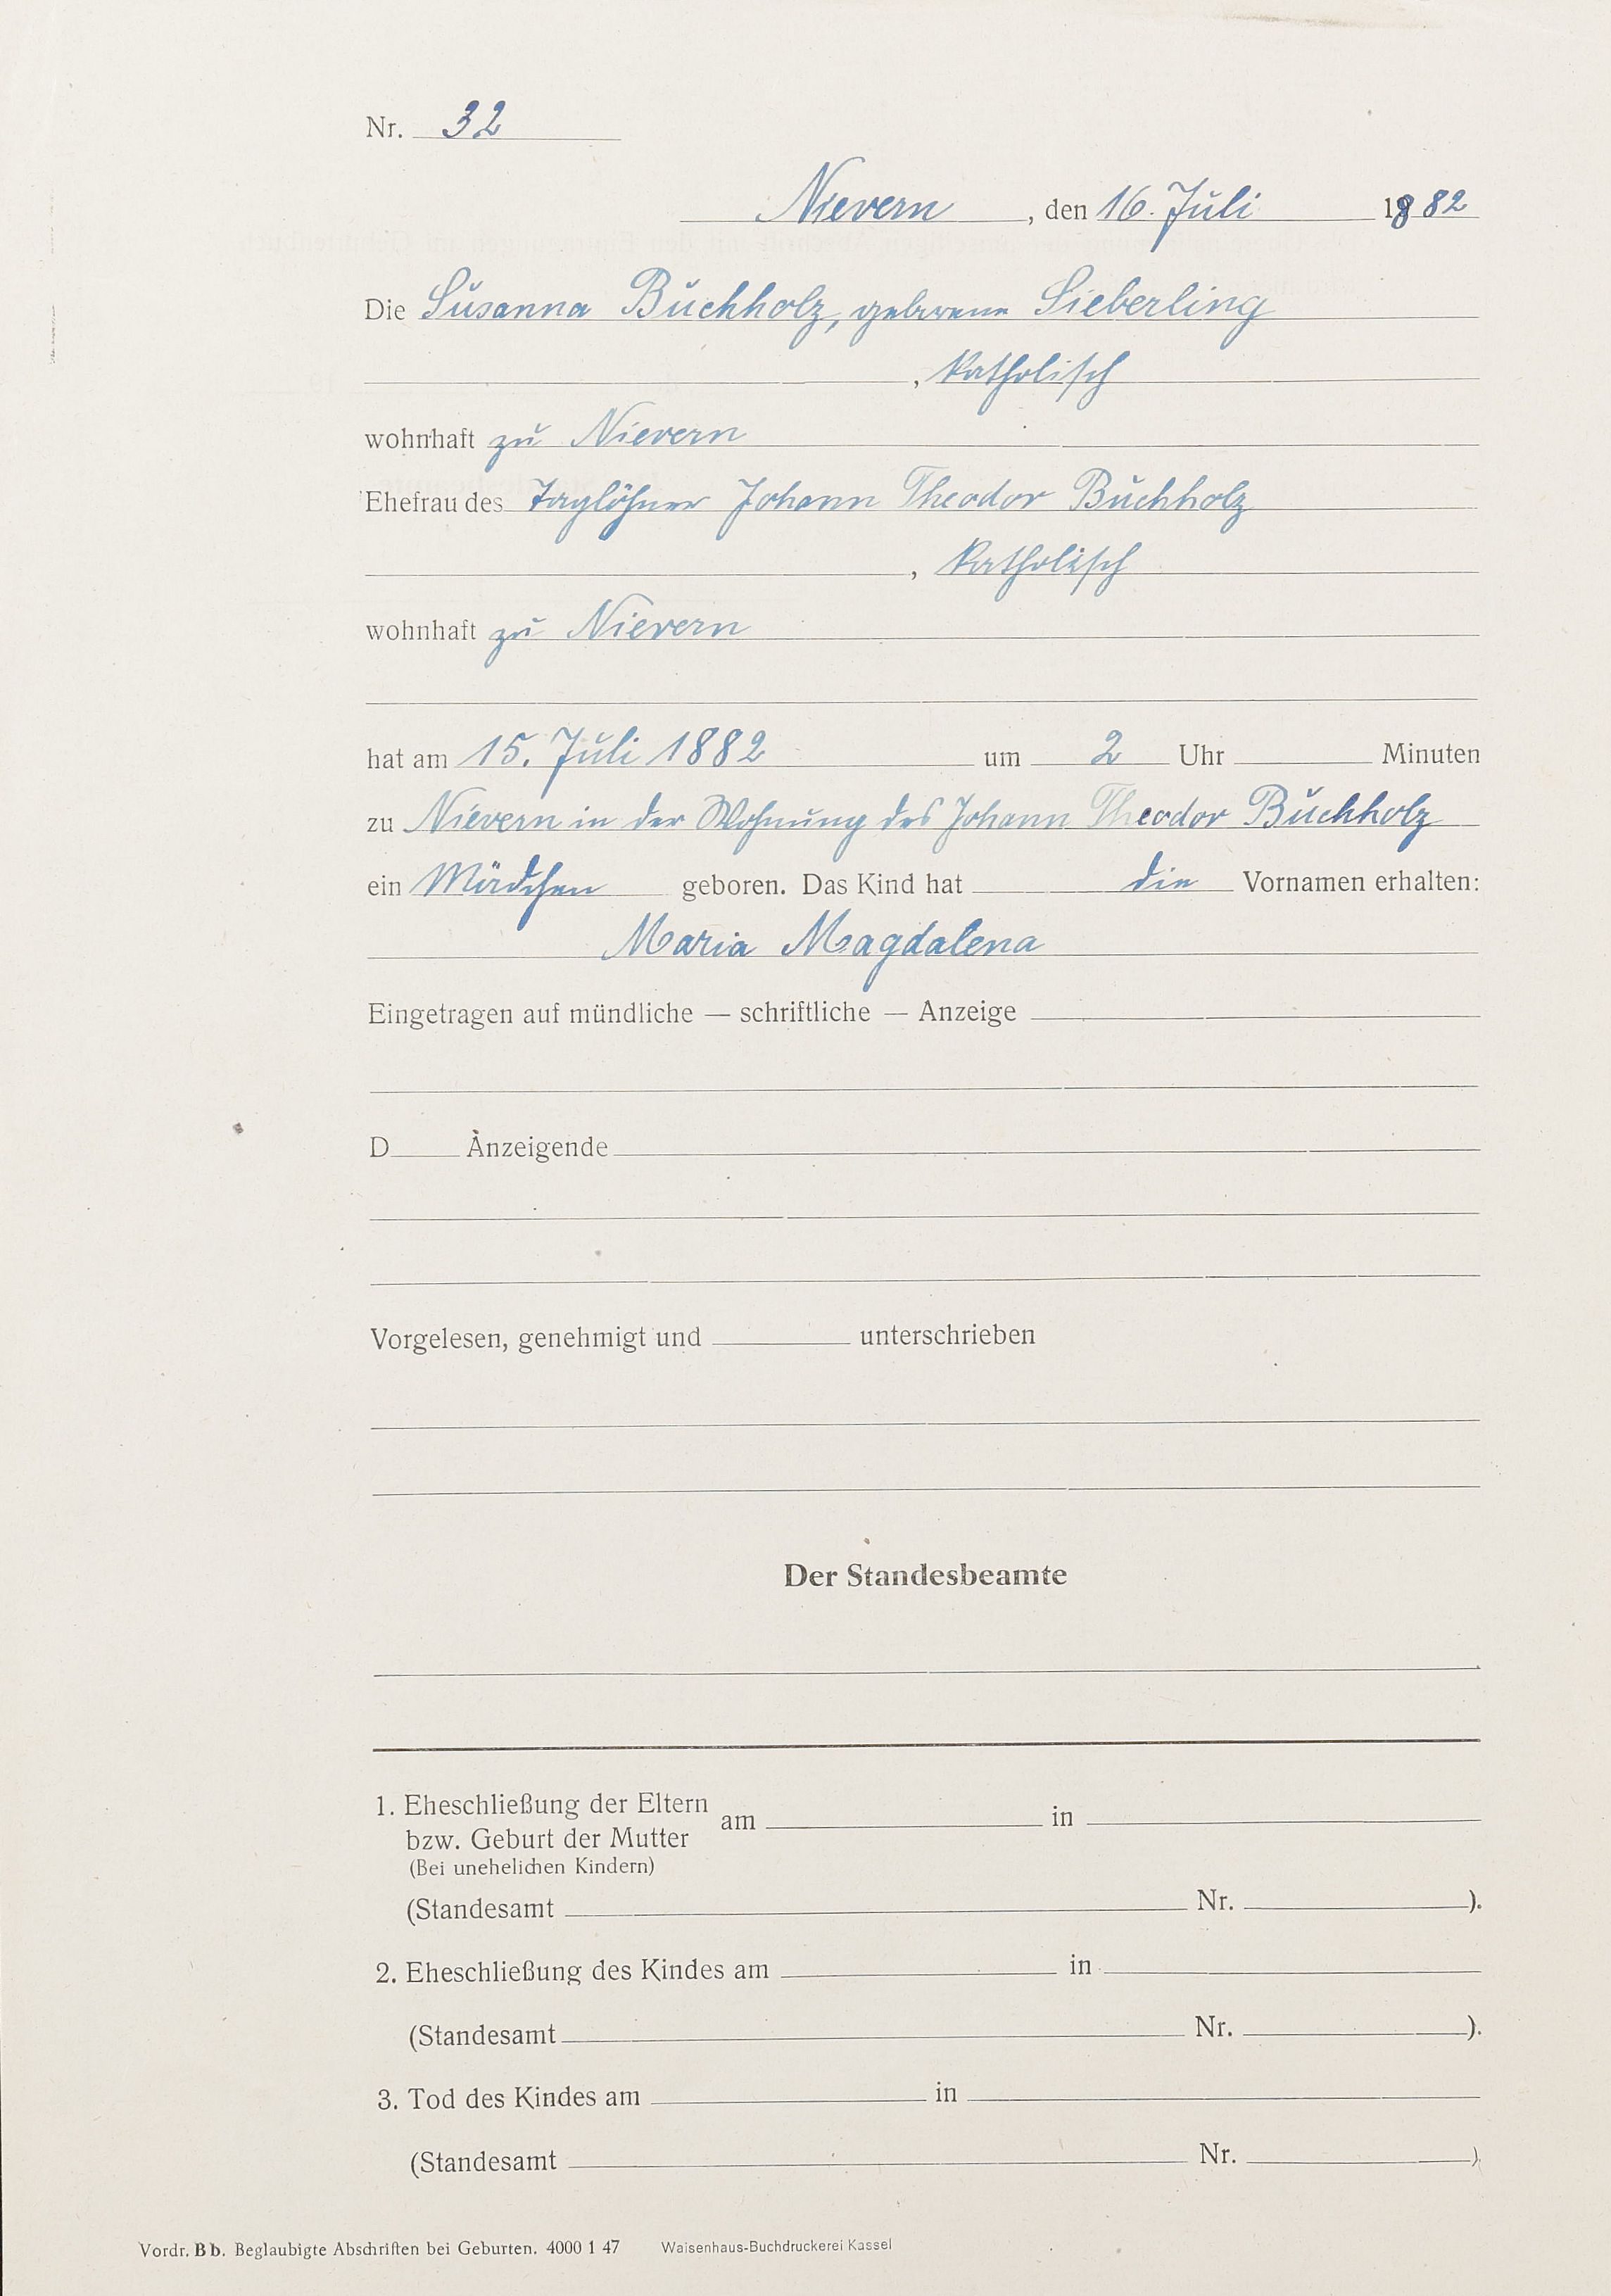 Nr. 32
Nievern, den 16. Juli 1882
Die Susanna Buchholz, geborene Sieberling
, katholisch
wohnhaft zu Nievern
Ehefrau des Taglöhner Johann Theodor Buchholz
, katholisch
wohnhaft zu Nievern
hat am 15. Juli 1882 um 2 Uhr Minuten
zu Nievern in der Wohnung des Johann Theodor Buchholz
ein Mädchen geboren. Das Kind hat die Vornamen erhalten:
Maria Magdalena
Eingetragen auf mündliche — schriftliche — Anzeige
D Anzeigende
Vorgelesen, genehmigt und unterschrieben
Der Standesbeamte
1. Eheschließung der Eltern
bzw. Geburt der Mutter am in
(Bei unehelichen Kindern)
(Standesamt Nr. ).
2. Eheschließung des Kindes am in
(Standesamt Nr. ).
3. Tod des Kindes am in
(Standesamt Nr. )
Vordr. Bb. Beglaubigte Abschriften bei Geburten. 4000 1 47 Waisenhaus-Buchdruckerei Kassel